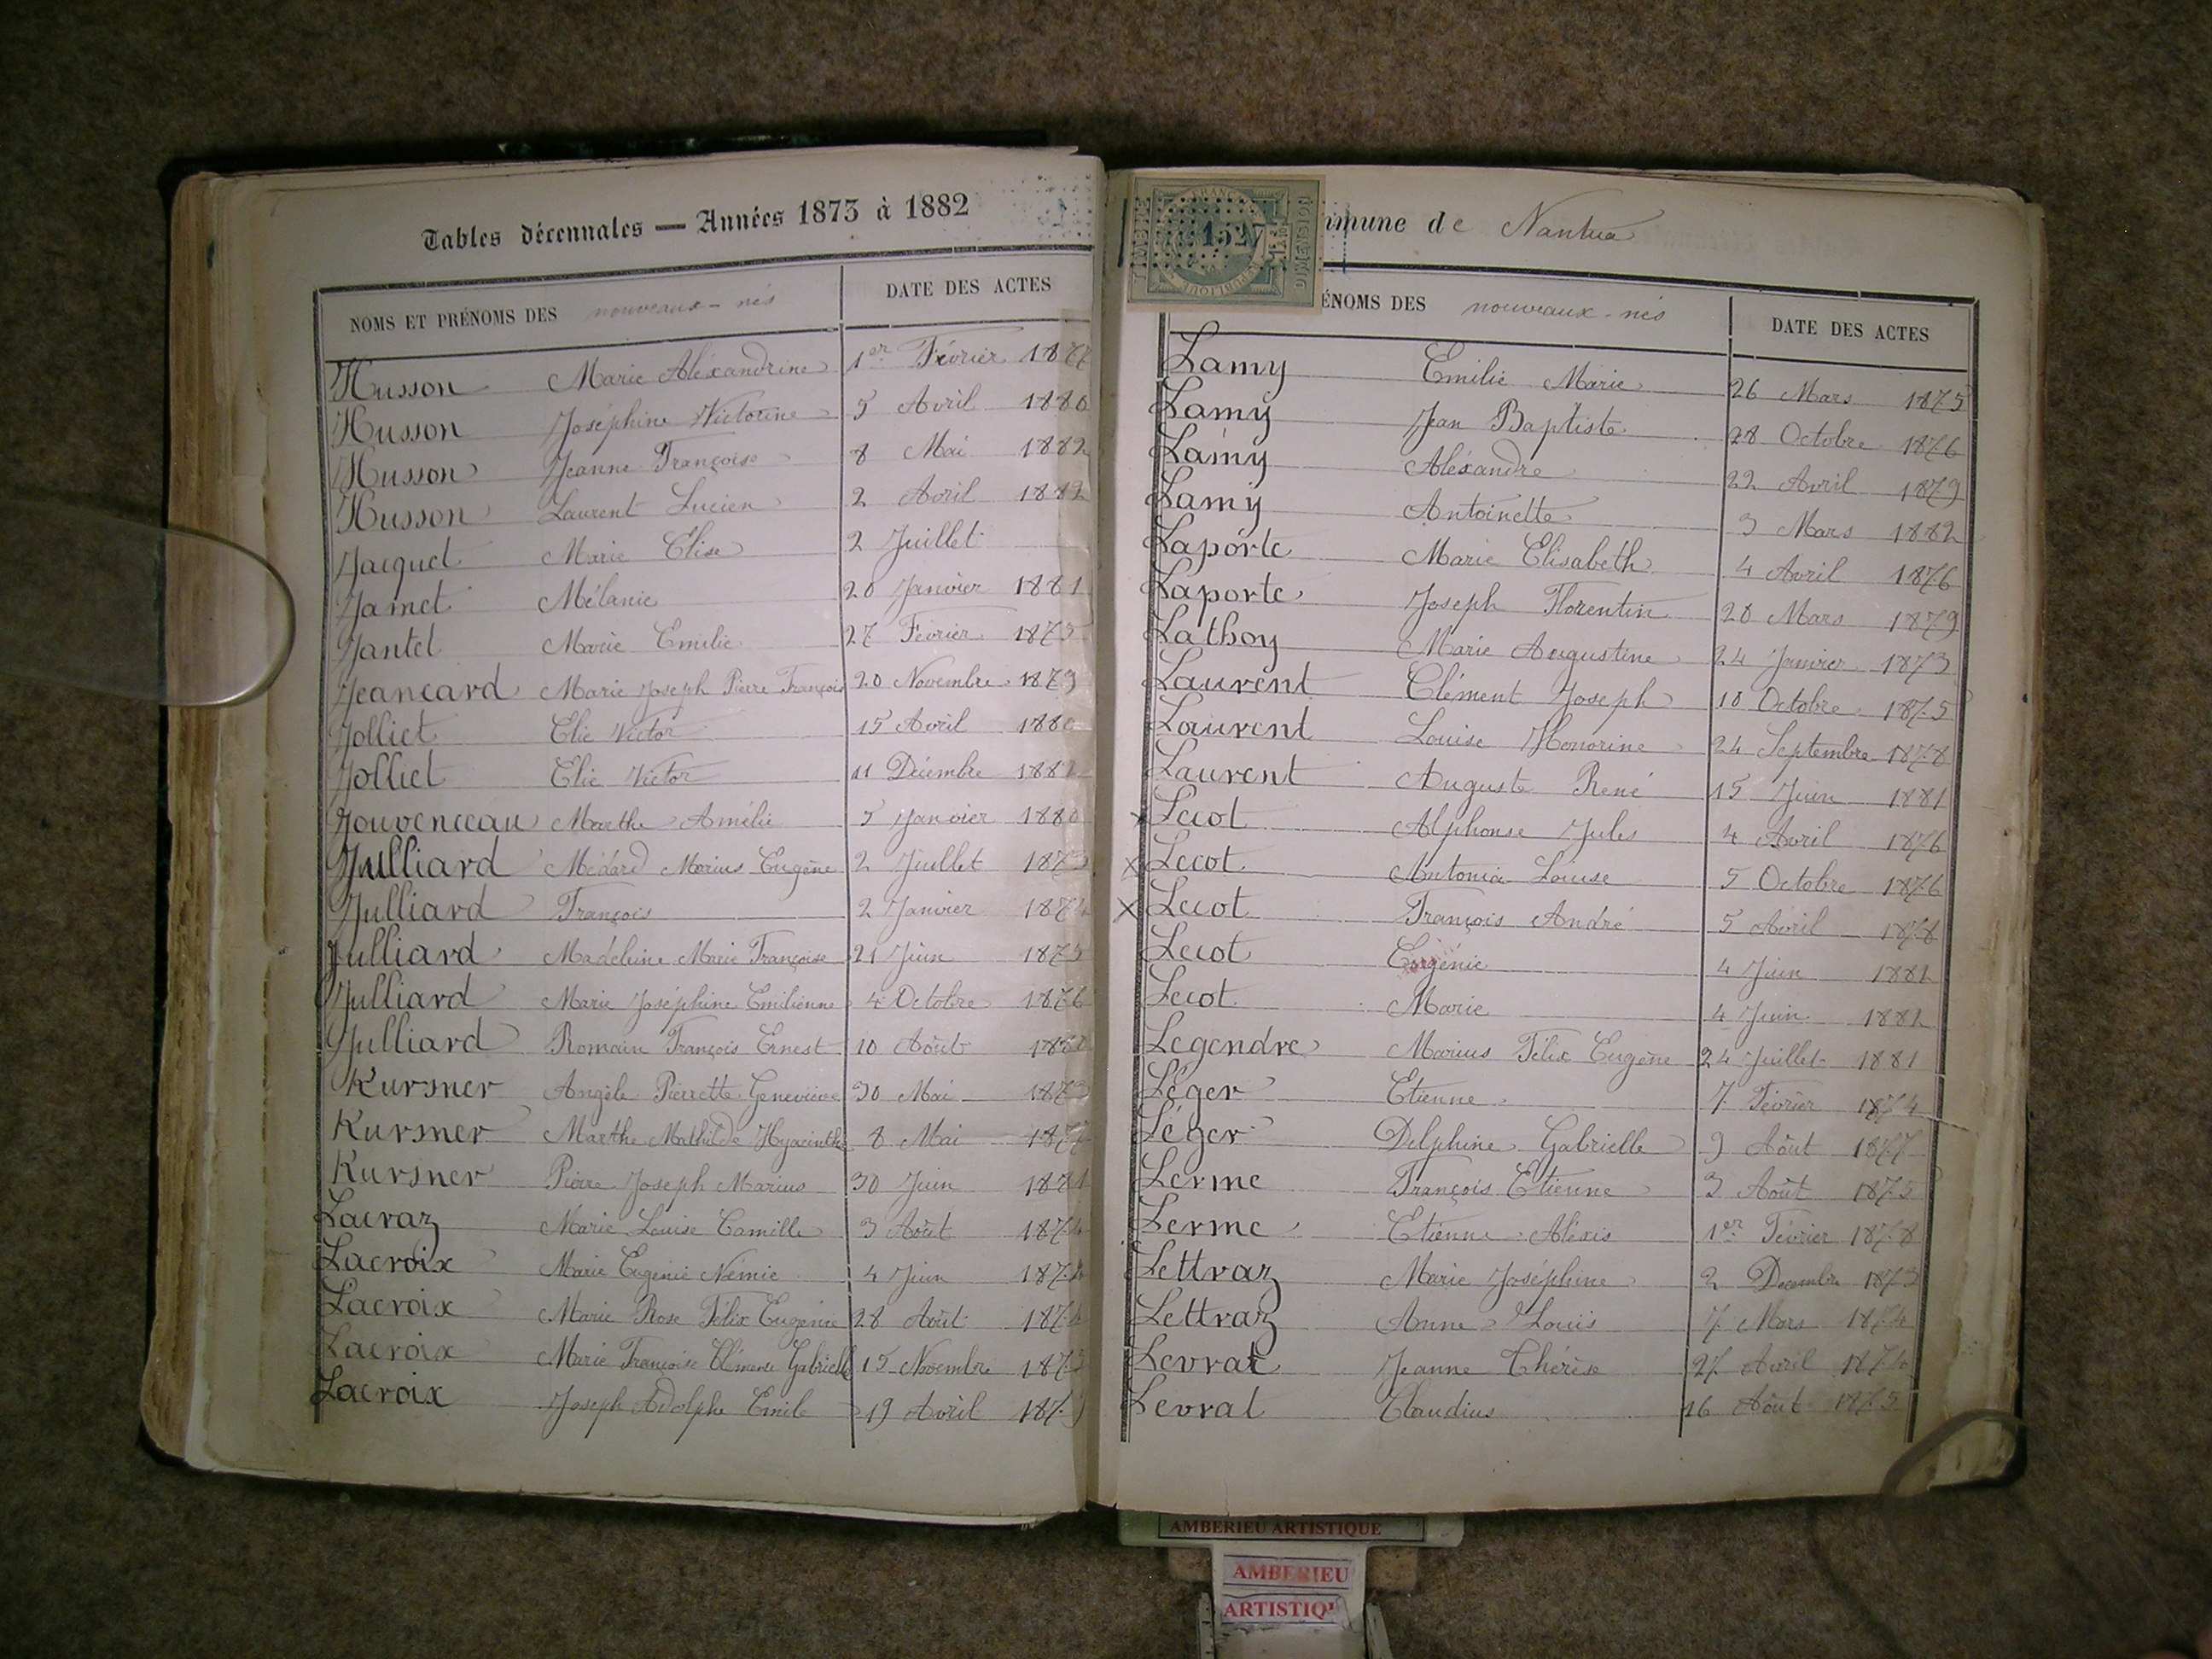 Tables décennales — Années 1873 à 1882
NOMS ET PRÉNOMS DES nouveaux-nés DATE DES ACTES
Husson Marie Aléxandrine 1er Février
Husson Joséphine Victorine 5 Avril 1880
Husson Jeanne Françoise 8 Mai 1882
Husson Laurent Lucien 2 Avril
Jacquet Marie Elise 2 Juillet
Jamet Mélanie 20 Janvier 1881
Jantet Marie Emilie 27 Février 1875
Jeancard Marie Joseph Pierre François 20 Novembre 1879
Jolliet Elie Victor 15 Avril 1880
Jolliet Elie Victor 11 Décembre
Jouvenceau Marthe Amélie 5 Janvier 1880
Julliard Médard Marius Eugène 2 Juillet
Julliard François 2 Janvier
Julliard Madeleine Marie Françoise 21 Juin 1875
Julliard Marie Joséphine Emilienne 4 Octobre 1876
Julliard Romain François Ernest 10 Août
Kursner Angèle Pierrette Geneviève 30 Mai
Kursner Marthe Mathilde Hyacinthe 8 Mai 1877
Kursner Pierre Joseph Marius 30 Juin 1881
Lacraz Marie Louise Camille 3 Août 1874
Lacroix Marie Eugénie Némie 4 Juin
Lacroix Marie Rose Félix Eugénie 28 Août
Lacroix Marie Françoise Clémence Gabrielle 15 Novembre
Lacroix Joseph Adolphe Emile 19 Avril
TIMBRE FRANÇAISE 1527 DIMENSION
mmune de Nantua
ÉNOMS DES nouveaux-nés DATE DES ACTES
Lamy Emilie Marie 26 Mars 1875
Lamy Jean Baptiste 28 Octobre 1876
Lamy Aléxandre 22 Avril 1879
Lamy Antoinette 3 Mars 1882
Laporte Marie Elisabeth 4 Avril 1876
Laporte Joseph Florentin 28 Mars 1879
Lathoy Marie Augustine 24 Janvier 1873
Laurent Clément Joseph 10 Octobre 1875
Laurent Louise Honorine 24 Septembre 1878
Laurent Auguste René 15 Juin 1881
x Lecot Alphonse Jules 4 Avril 1876
x Lecot Antonia Louise 5 Octobre 1876
x Lecot François André 5 Avril 1878
Lecot Eugénie 4 Juin 1882
Lecot Marie 4 Juin 1882
Legendre Marius Félix Eugène 24 Juillet 1881
Léger Etienne 7 Février 1874
Léger Delphine Gabrielle 9 Août 1877
Lerme François Etienne 3 Août 1875
Lerme Etienne Aléxis 1er Février 1878
Lettraz Marie Joséphine 2 Décembre 1873
Lettraz Anne Louis 7 Mars 1874
Levrat Jeanne Thérèse 27 Avril 1874
Levrat Claudius 16 Août 1875
AMBERIEU ARTISTIQUE
AMBERIEU
ARTISTIQU